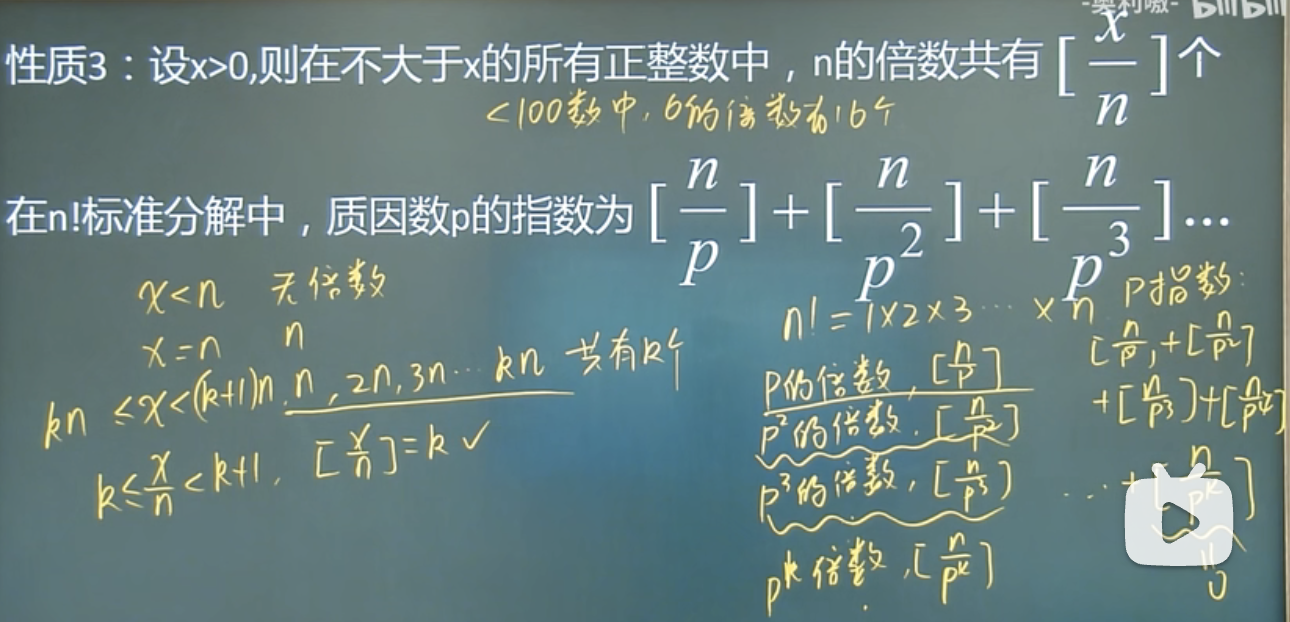 -奥利嗷- bilibili
性质3：设x>0,则在不大于x的所有正整数中，n的倍数共有[x/n]个
<100数中，6的倍数有16个
在n!标准分解中，质因数p的指数为[n/p]+[n/p²]+[n/p³]...
x<n 无倍数
x=n n
kn≤x<(k+1)n, n,2n,3n…kn 共有k个
k≤x/n<k+1, [x/n]=k✓
n!=1×2×3…×n
p的倍数,[n/p]
p²的倍数,[n/p²]
p³的倍数,[n/p³]
pᵏ倍数,[n/pᵏ]
P指数:
[n/p]+[n/p²]
+[n/p³]+[n/p⁴]
…+[n/pᵏ]
0